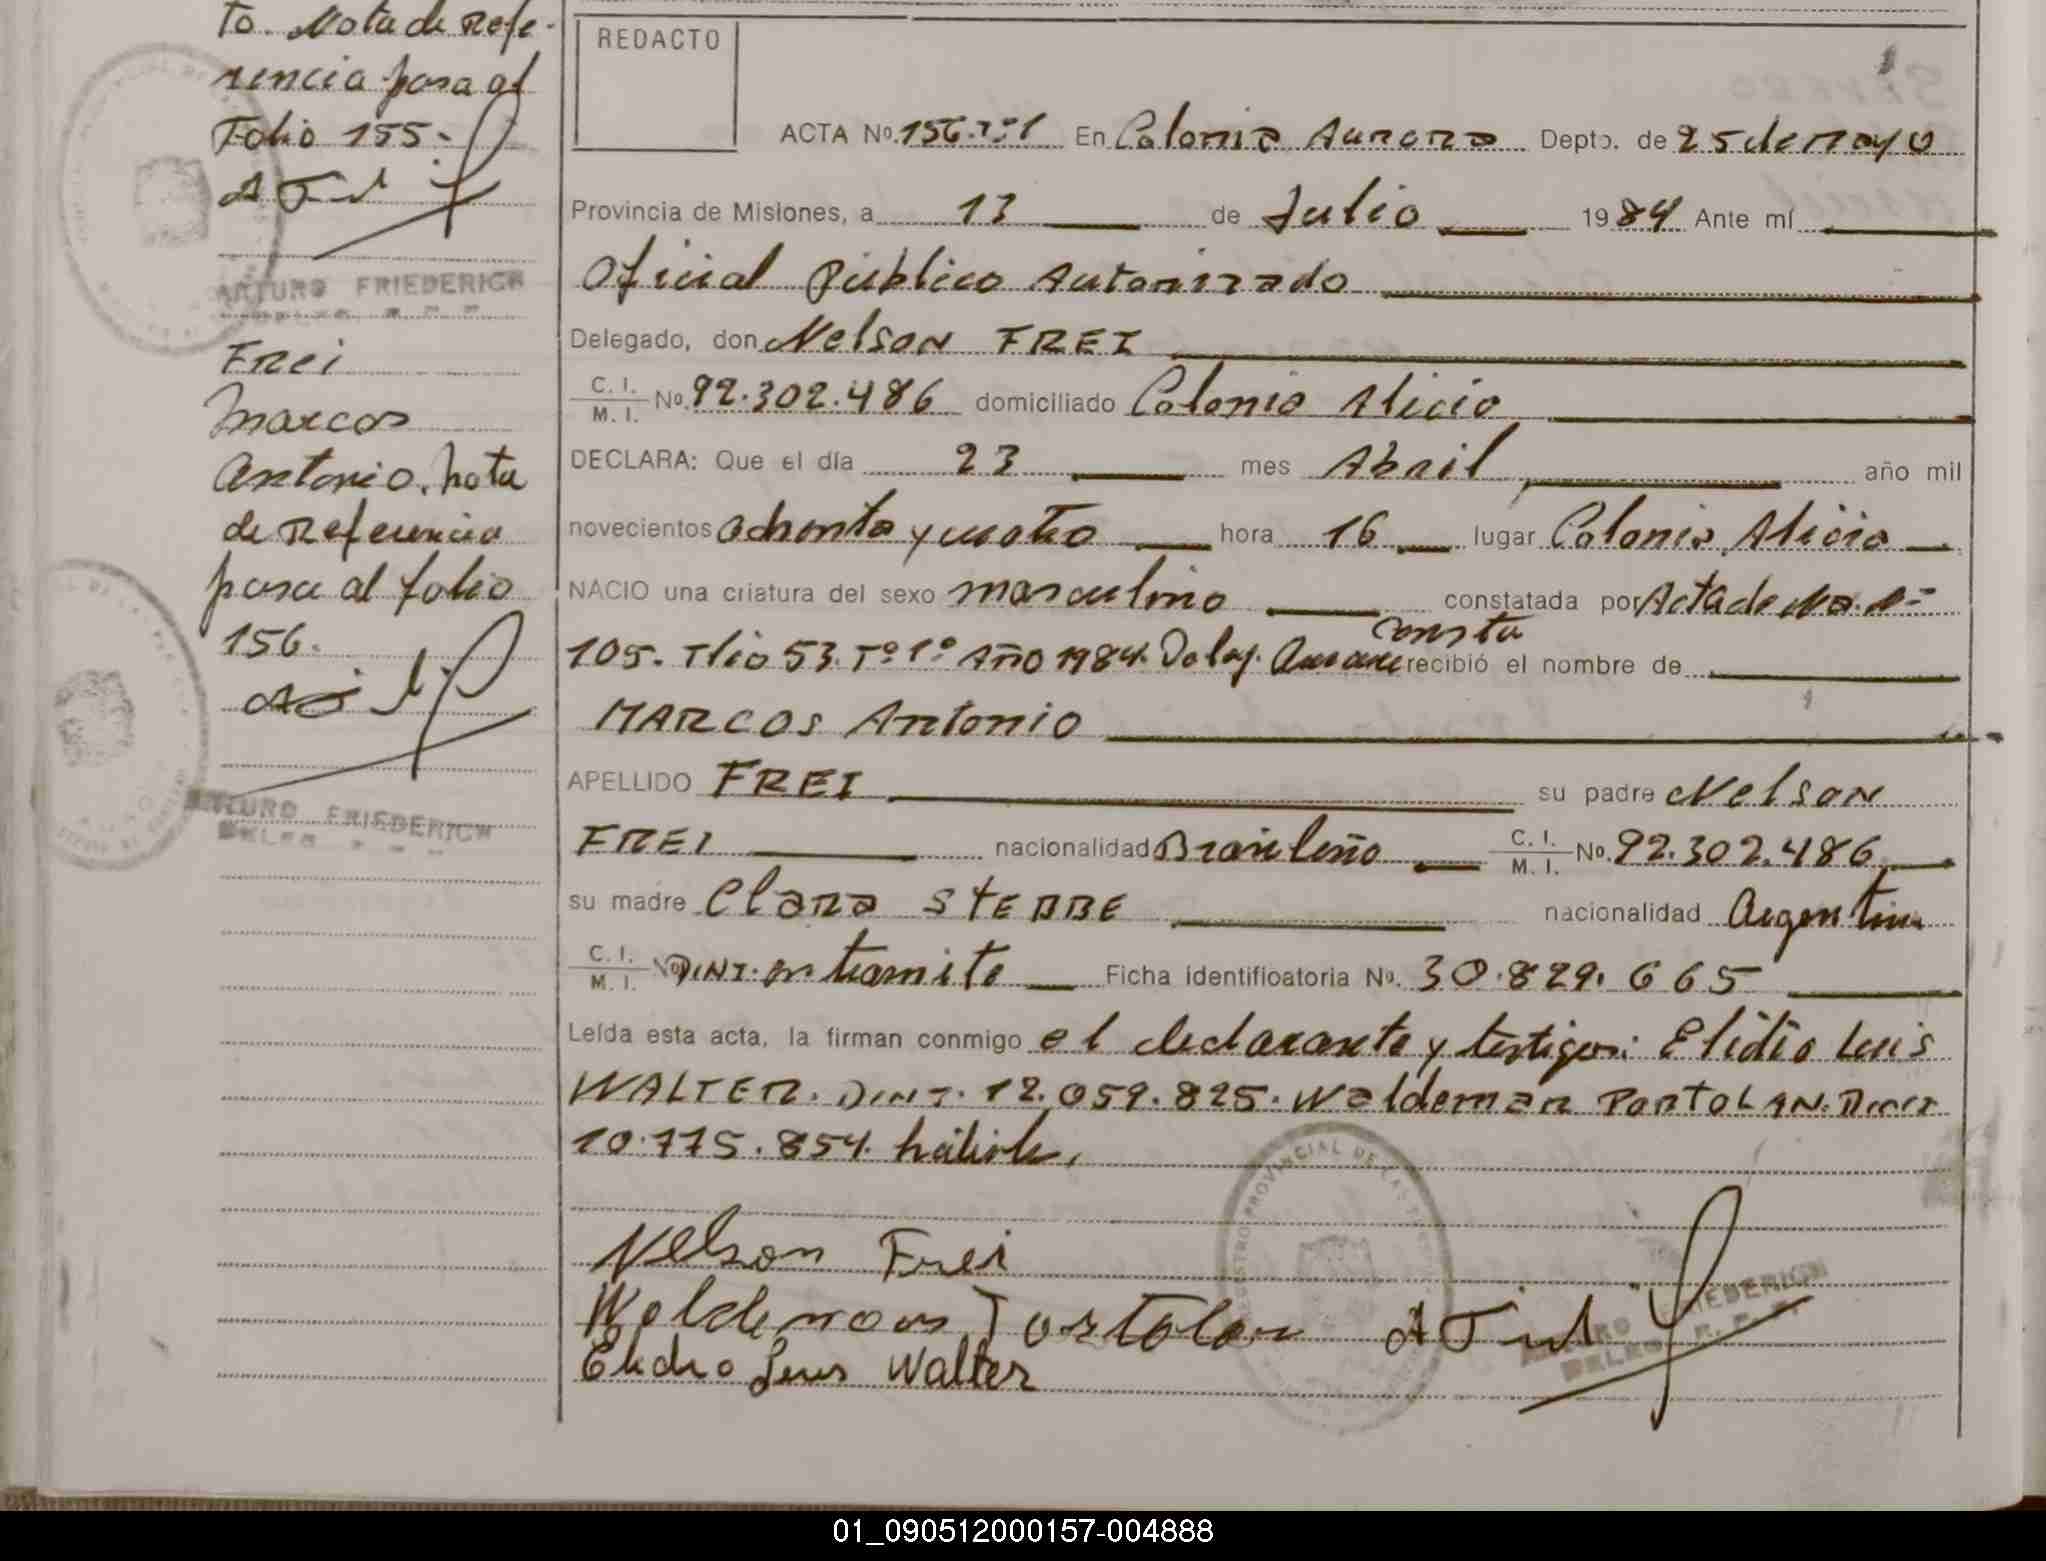 to. Nota de Refe-
rencia pasa al
Folio 155.
ARTURO FRIEDERICH
Frei
Marcos
Antonio. Nota
de Referencia
pasa al folio
156.
ARTURO FRIEDERICH
REDACTO
ACTA No. 156. Tº1 En Colonia Aurora Depto. de 25 de Mayo
Provincia de Misiones, a 13 de Julio 1984 Ante mí
Oficial Público Autorizado
Delegado, don Nelson FREI
C. I. M. I. No. 92.302.486 domiciliado Colonia Alicia
DECLARA: Que el día 23 mes Abril año mil
novecientos ochenta y cuatro hora 16 lugar Colonia Alicia
NACIO una criatura del sexo masculino constatada por Acta de Na.
105. Flio 53. Tº 1º Año 1984. Deleg. Aurora consta recibió el nombre de
MARCOS Antonio
APELLIDO FREI su padre Nelson
FREI nacionalidad Brasileño C. I. M. I. No. 92.302.486
su madre Clara STEBBE nacionalidad Argentina
C. I. M. I. No DNI. en tramite Ficha identificatoria No. 30.829.665
Leída esta acta, la firman conmigo el declarante y testigos: Elidio Luis
WALTER. DNI. 12.059.825. Waldemar PORTOLAN. DNI
10.775.854. hábiles.
REGISTRO PROVINCIAL DE LAS
Nelson Frei
Waldemar Portolan
ARTURO FRIEDERICH
Elidio Luis Walter
01_090512000157-004888